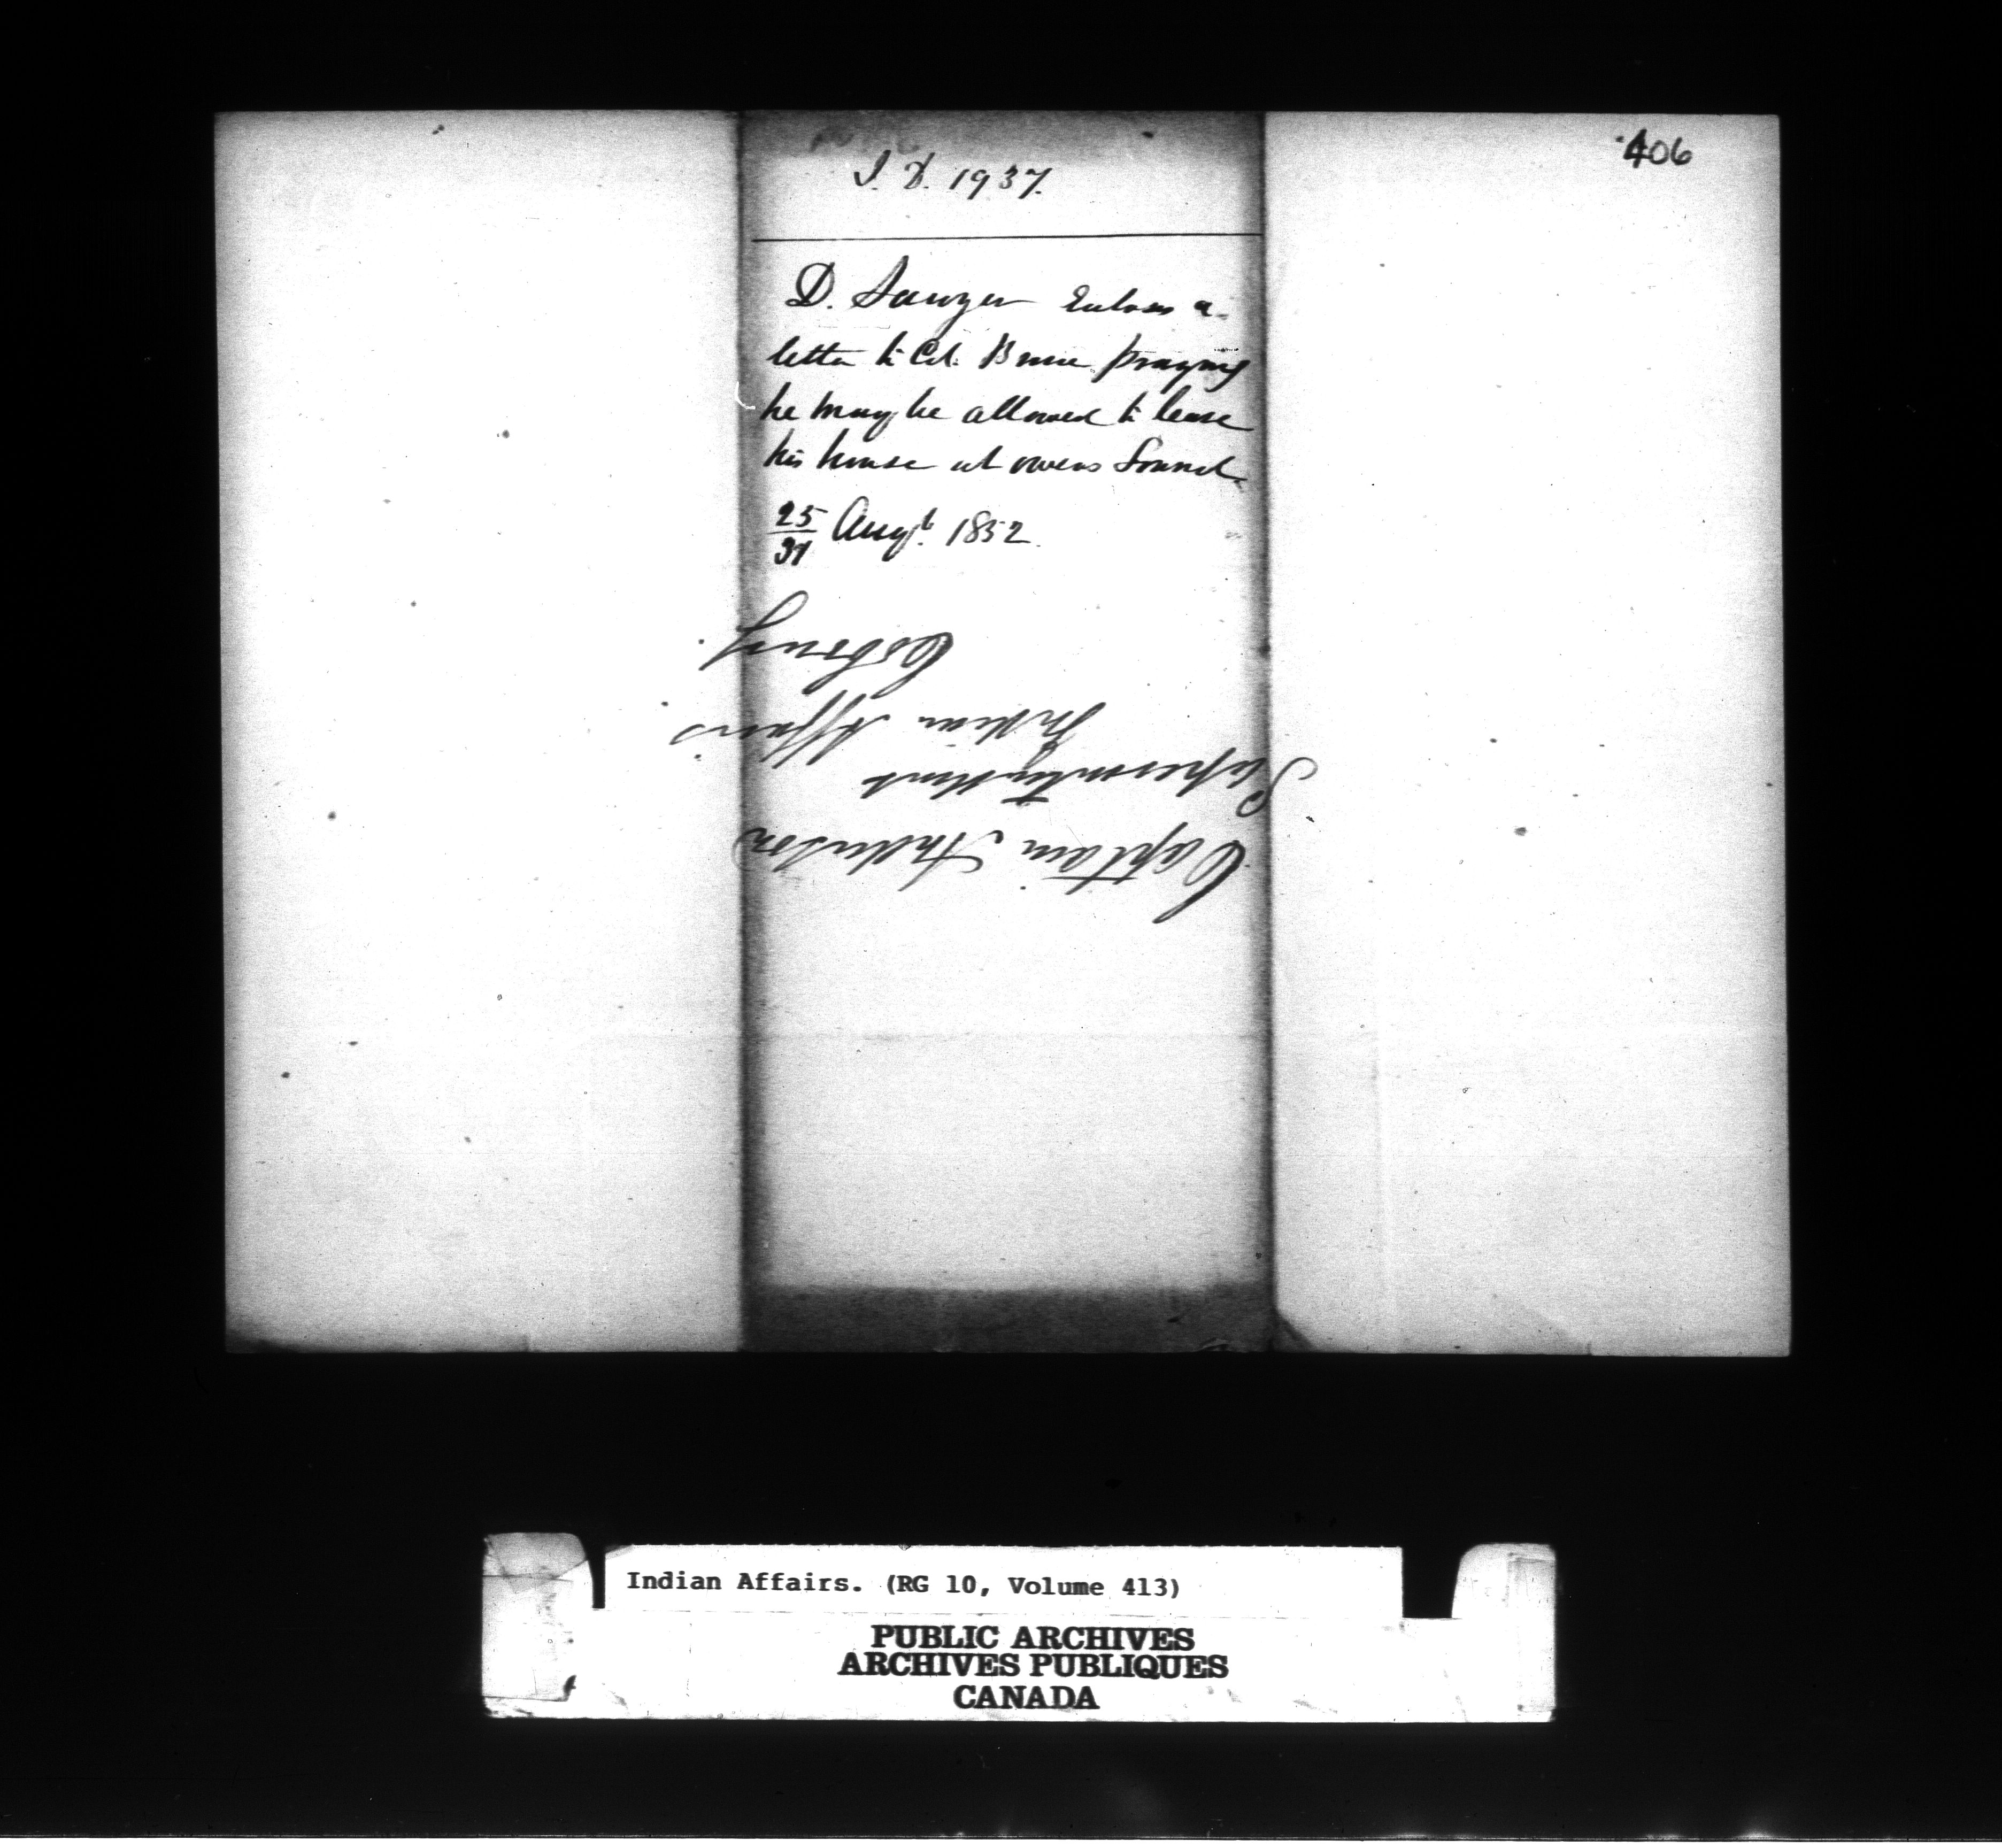 406
I. D. 1937.
D. Sawyer Encloses a
letter to Col. Bruce praying
he may be allowed to lease
his house at owens Sound.
25/31 Augt. 1852.
Captain Anderson
Superintendent
Indian Affairs
Cobourg
Indian Affairs. (RG 10, Volume 413)
PUBLIC ARCHIVES
ARCHIVES PUBLIQUES
CANADA